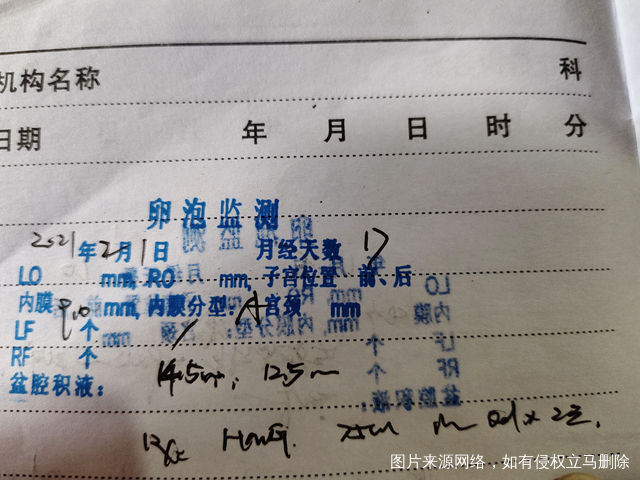 机构名称 科
日期 年 月 日 时 分
卵泡监测
2021年2月1日 月经天数 17
LO mm, RO mm, 子宫位置 前、后
内膜 9.0 mm, 内膜分型: A 宫颈 mm
LF 个
RF 个
盆腔积液: 14.5mm, 12.5mm
HMG 75u im qd x 2天.
图片来源网络，如有侵权立马删除